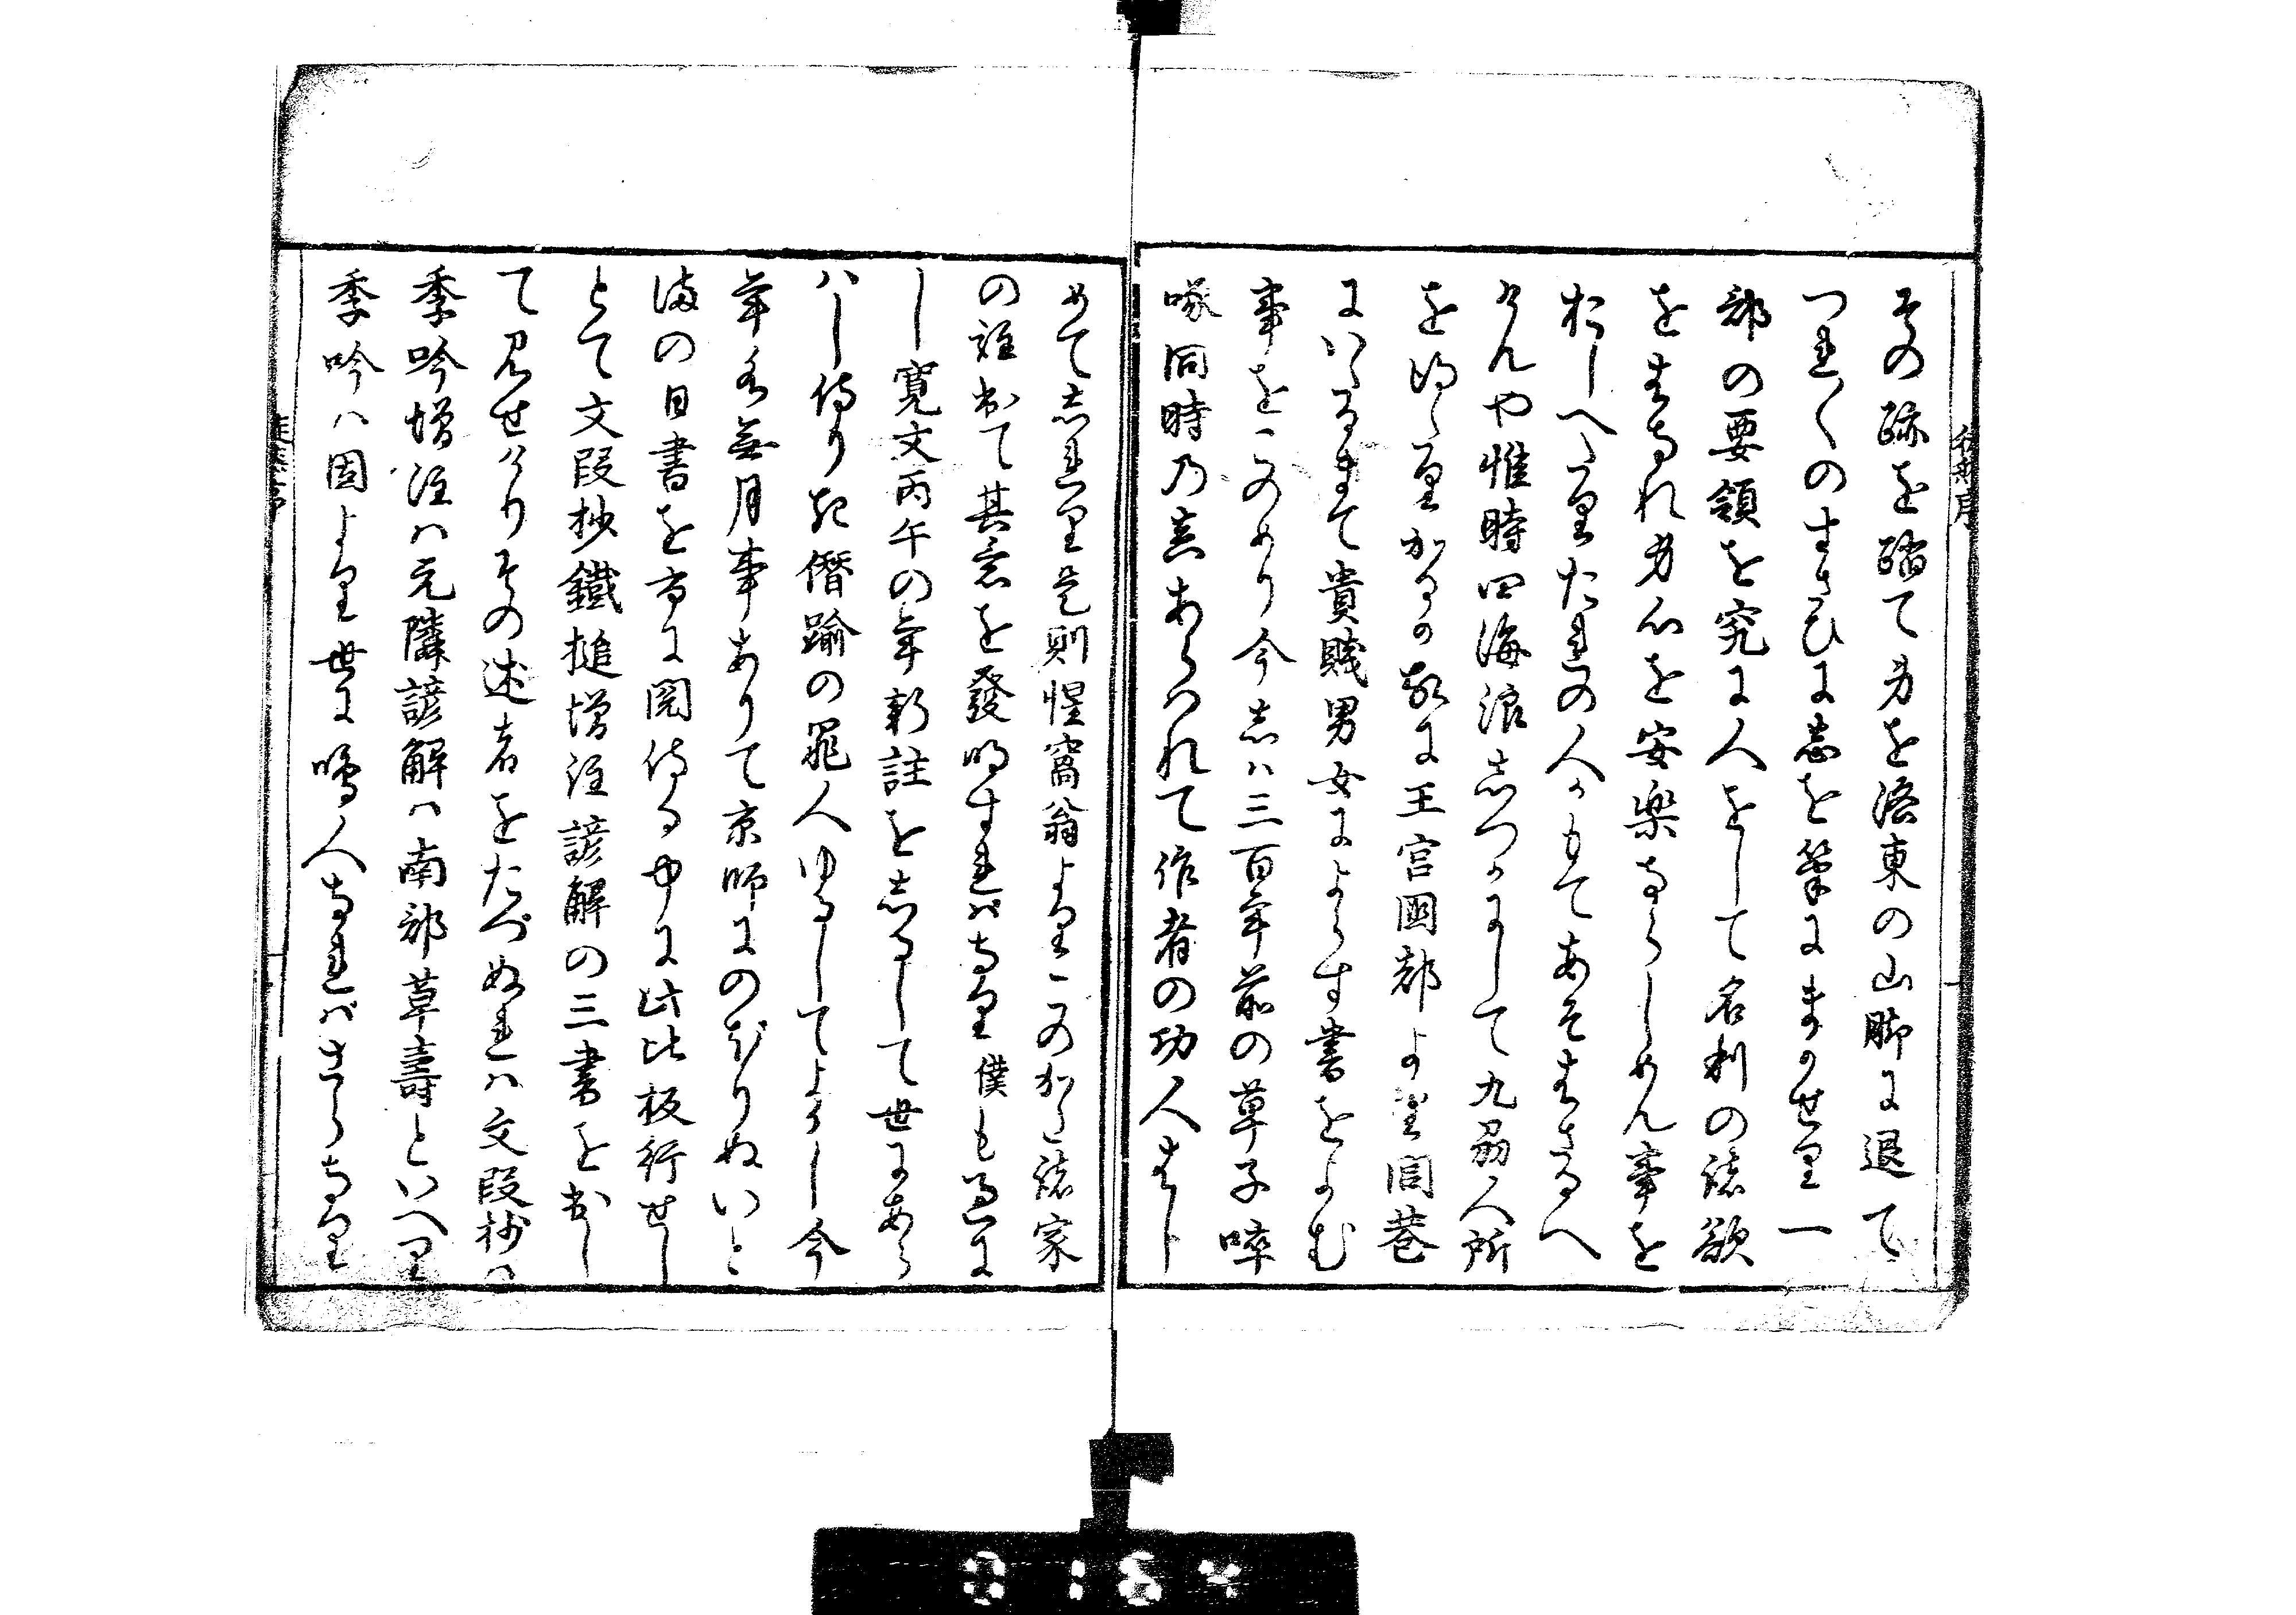 その跡を踏て身を洛東の山脚に退て
つれ〱のすさひに志を筆にまかせり一
部の要領を究に人をして名利の諸欲
をはなれ身心を安楽ならしめん事を
おしへたりたれの人かもてあそはさるへ
けんや惟時四海浪しつかにして九州人所
を得たりかるか故に王宮国都より閭巷
にいたるまて貴賤男女によらす書をよむ
事をこのめり今しは三百年前の草子啐
啄同時乃真あらはれて作者の功人はし
めてしれり是則惺窩翁よりこのかた諸家
の註出て其意を發明すれはなり僕も過に
し寛文丙午の年新註をしるして世にあら
はし侍りき僭踰の罪人ゆるしてよかし今
年水無月事ありて京師にのぼりぬいと
まの日書を市に閲侍る中に此比板行せし
とて文段抄鐵槌増註諺解の三書を出し
て見せけりその述者をたづぬれは文段抄は
季吟増註は元隣諺解は南部草壽といへり
季吟は固より世に鳴人なればさらなり